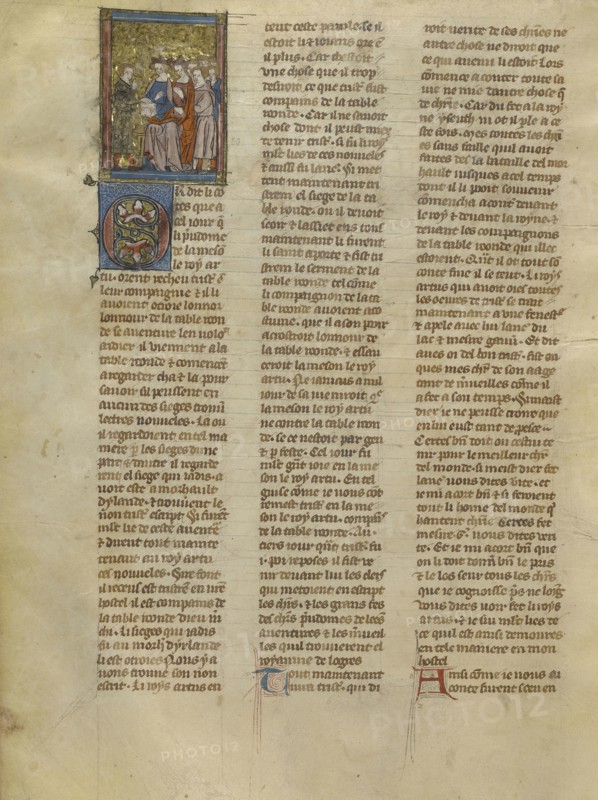 li dit li co
tes que a
cel jour q̄
li pudome
de la meso
le roy ar
tu. orent recheu trist̄ &
leur compaignie & il li
auoient otroie lonnor
lonnour de la table ron
de se auenture len volo
ardier il viennent a la
table ronde & comencet
a regarder cha & la pour
sauoir sil peussent en
aucun des sieges trouu
lectres nouueles. La ou
il regardoient en tel ma
mere p̄ les sieges dune
part & dautre il regarde
rent el siege qui iadis a
uoit este a morhault
dyrlande. & trouuent le
non trist̄ escript. Qi furēt
mlt̄ lie de ceste auentē
& dient tout mainte
tenant au roy artu
cel nouueles. Sire font
il recheus est tristrā en nrē
hostel il est compains de
la table ronde dieu m
chi. Li sieges qui iadis
fu au morhlt dyrlande
li est otroies. Nous y a
uons trouue son non
escrit. Li roys artus en
tent ceste parole. Se il
estoit lie & ioians ore ē
il plus. Car chestoit
vne chose que il trop
desiroit ce que trist̄ fust
compains de la table
ronde. Car il ne sauoit
chose dont il peust miex
detenir trist̄. si fu li roy
mlt̄ lies de ces nouueles
& aussi fu lanc̄. Qi met
tent maintenant tri
stran el siege de la ta
ble ronde. ou il deuoit
seoir & lassiet ens tout
maintenant li furent
li saint aporte & fist tri
stran le serment de la
table ronde tel come
li compaignon de la ta
ble ronde auoient acos
tume. que il a son pooir
acroistroit lonnour de
la table ronde. & essau
ceroit la meson le roy
artu. Ne iamais a nul
iour de sa vie niroit
la meson le roy artu
ne contre la table ron
de. se ce nestoit par gieu
& p̄ feste. Cel iour fu
mlt̄ gn̄t ioie en la me
son le roy artu. En tel
guise come ie nous cōt
remest trist̄ en la me
son le roy artu. compaīg
de la table ronde. Au
tiers iour qn̄t trist̄ fu
.i. poi reposes il fist ve
nir deuant lui les clers
qui metoient en escript
les chrs̄. & les grans fes
des chrs̄ pudomes de leos
auentures & les mueil
les quil trouuerent el
royaume de logres
Tout maintenant
iura trist̄. qui di
roit verite de ses chrēs ne
autre chose ne diroit que
ce qui auenu li estoit. Lors
comence a conter toute sa
vie ne mie dautre chose q̄
de chrē. Car du fre a la roy
ne yseuth ni ot il ple a ce
ste fois. Mes contes les chrē
es sans faille quil auoit
faites des la bataille del mor
hault iusques a cel temps
dont il li pooit souuenir
comencha a conter deuant
le roy & deuant la royne. &
deuant les compaignons
de la table ronde qui illec
estoient. Qn̄t il ot tout sō
conte fine il se teut. Li roys
artus qui auoit oies toutes
les oeures de trist̄ se traist
maintenant a vne fenestē
& apele auec lui lanc̄ du
lac & mesire gauū. Et dit
aues oi del bon trist̄. fist on
ques mes chr̄ de son aage
tant de merueilles come il
a fet a son temps. Si maist
diex ie ne peusse croire que
en lui eust tant de proesce.
Certes bn̄ doit on cestui te
nir pour le meilleur chr̄
del monde. si meist diex fet
lanc̄ vous dites voir. et
ie mi acort bn̄ & si feroient
tout li home del monde q̄
hantent chrīe. Certes fet
mesire .G. vous dites veri
te. Et ie mi acort bn̄ que
on li doit doner bn̄ le pris
& le los seur tous les chrs̄
que ie cognoisse pres ne loīg
vous dites voir fet li roys
artus. & ie sui mlt̄ lies de
ce quil est ansi demoures
en cele maniere en mon
hostel
Ansi come ie uous ai
conte furent sceu en
PHOTO12